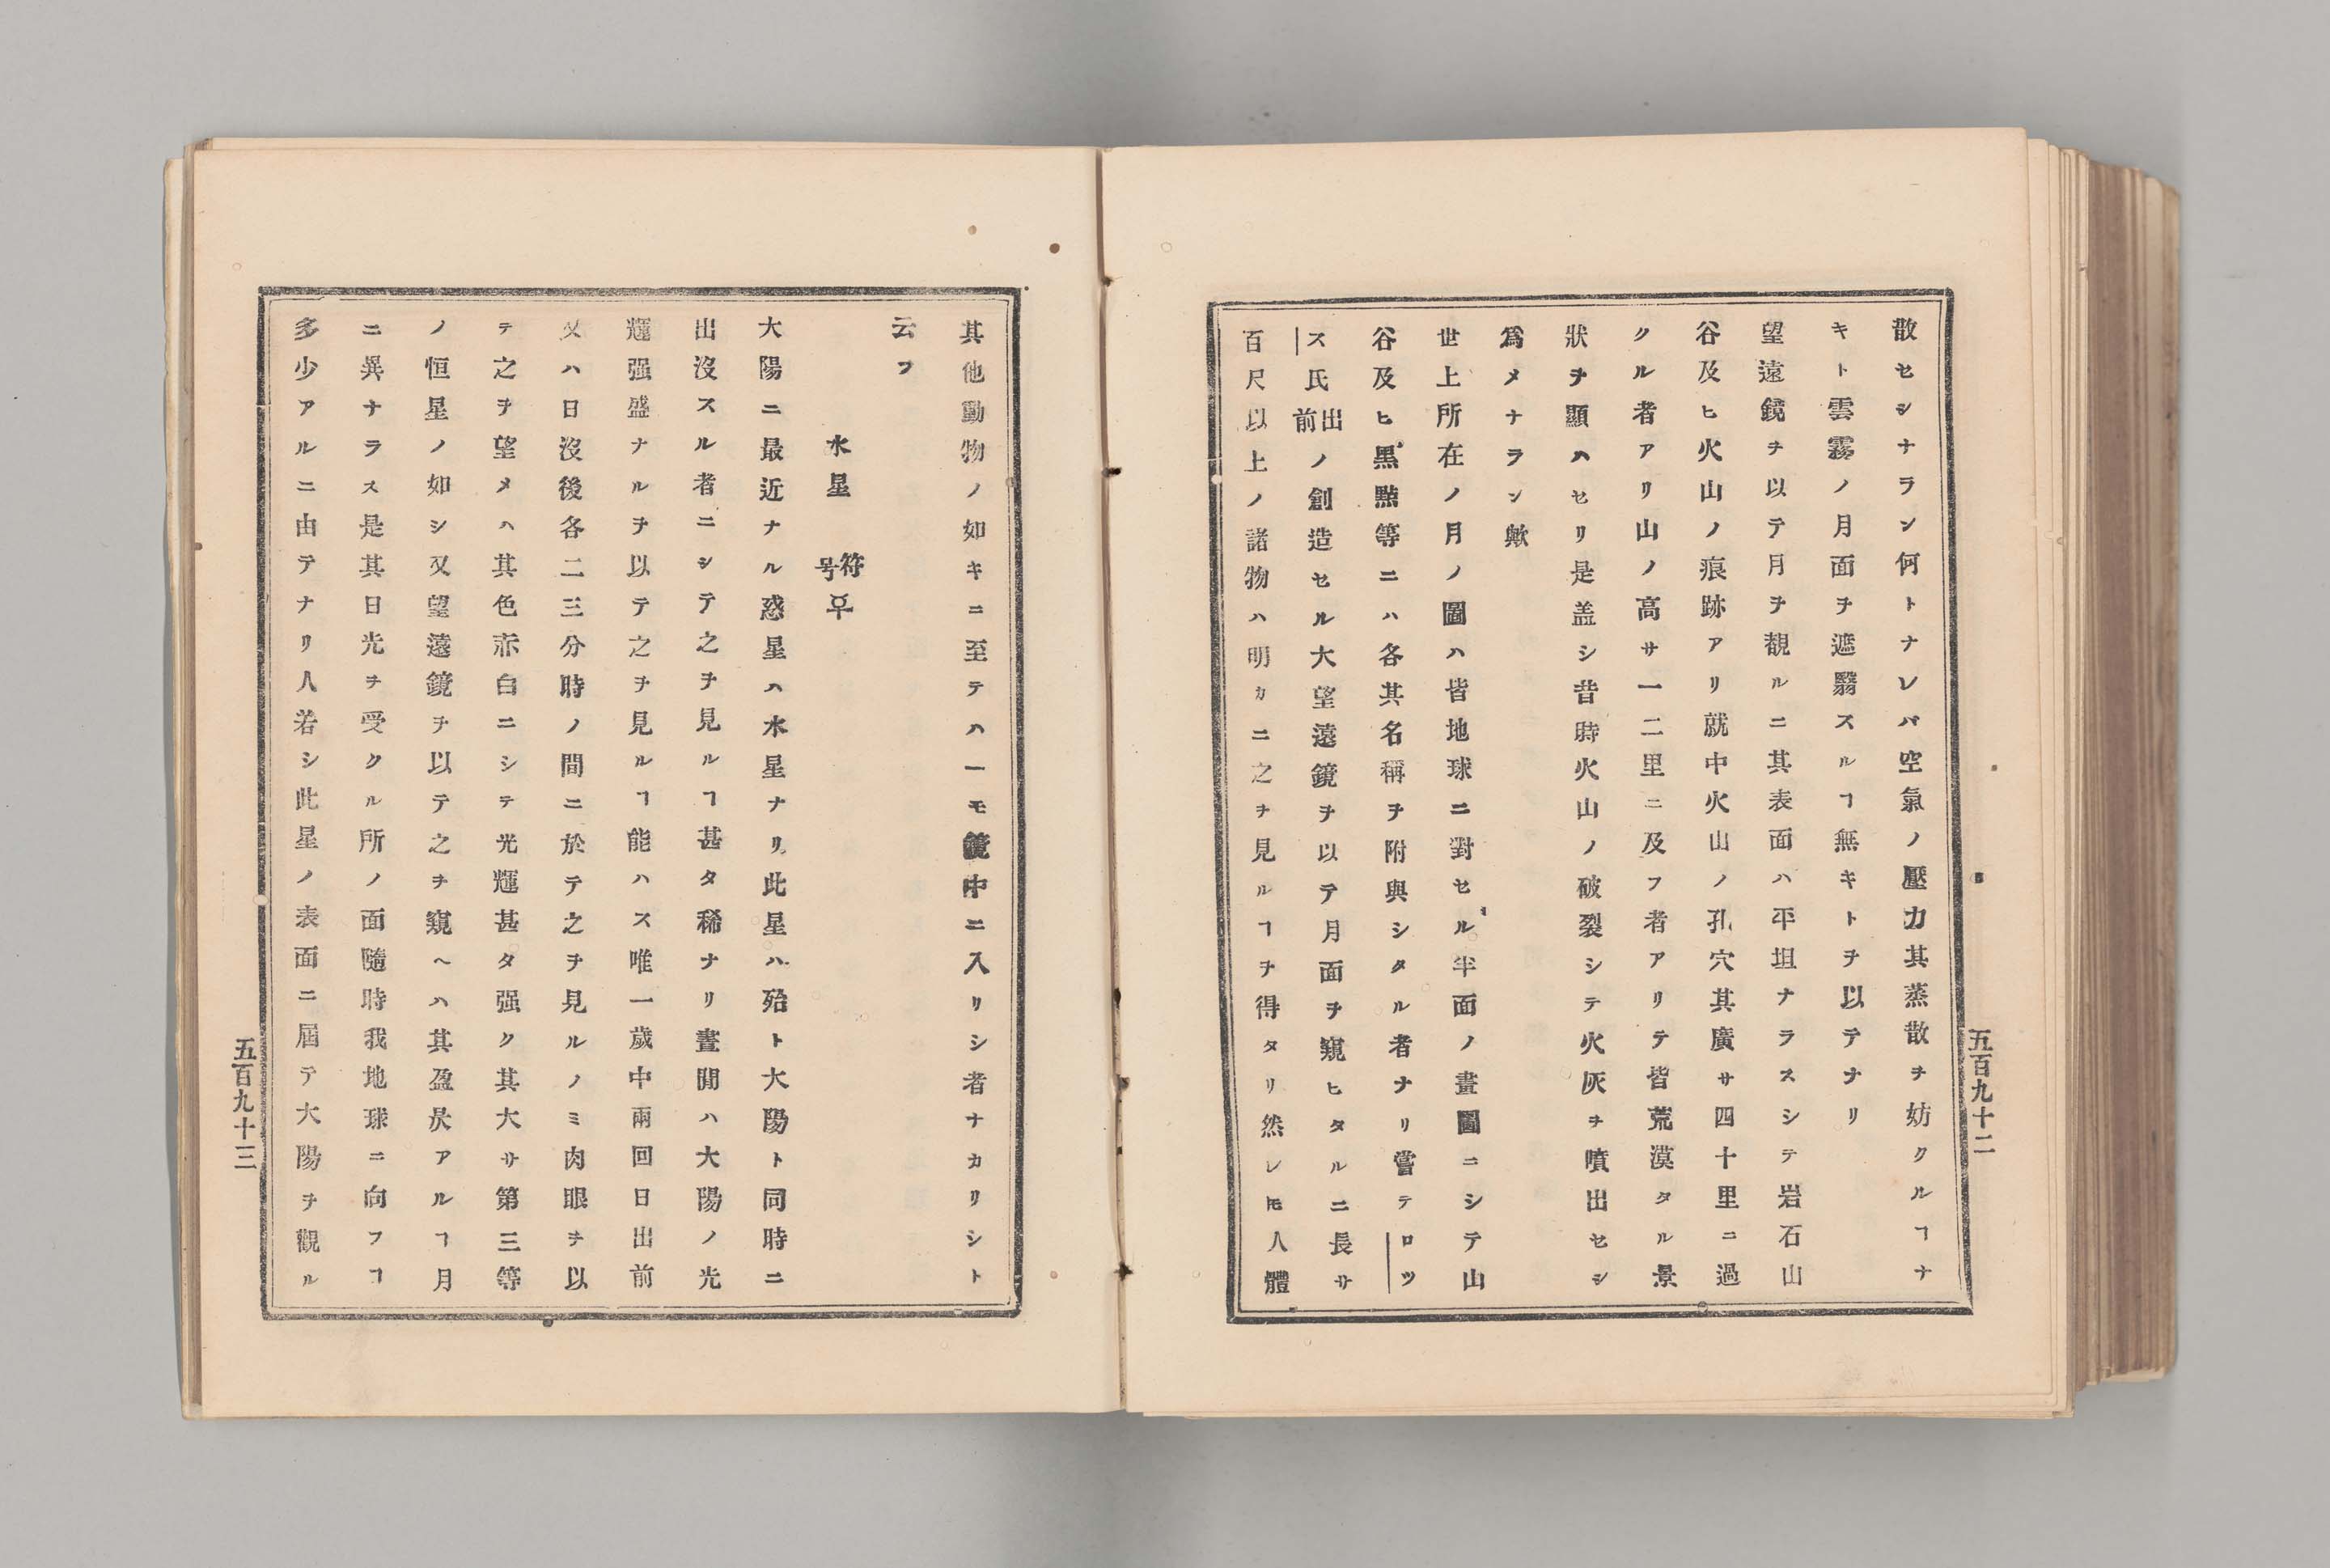 五百九十二
散セシナラン何トナレバ空氣ノ壓力其蒸散ヲ妨クルヿナ
キト雲霧ノ月面ヲ遮翳スルヿ無キトヲ以テナリ
望遠鏡ヲ以テ月ヲ覩ルニ其表面ハ平坦ナラスシテ岩石山
谷及ヒ火山ノ痕跡アリ就中火山ノ孔穴其廣サ四十里ニ過
クル者アリ山ノ高サ一二里ニ及フ者アリテ皆荒漠タル景
狀ヲ顯ハセリ是盖シ昔時火山ノ破裂シテ火灰ヲ噴出セシ
爲メナラン歟
世上所在ノ月ノ圖ハ皆地球ニ對セル半面ノ畫圖ニシテ山
谷及ヒ黑點等ニハ各其名稱ヲ附與シタル者ナリ嘗テロツ
ス氏前出ノ創造セル大望遠鏡ヲ以テ月面ヲ窺ヒタルニ長サ
百尺以上ノ諸物ハ明カニ之ヲ見ルヿヲ得タリ然レ𪜈人體
其他動物ノ如キニ至テハ一モ鏡中ニ入リシ者ナカリシト
云フ
水星 符号☿
大陽ニ最近ナル惑星ハ水星ナリ此星ハ殆ト大陽ト同時ニ
出沒スル者ニシテ之ヲ見ルヿ甚タ稀ナリ晝間ハ大陽ノ光
輝强盛ナルヲ以テ之ヲ見ルヿ能ハス唯一歲中兩回日出前
又ハ日沒後各二三分時ノ間ニ於テ之ヲ見ルノミ肉眼ヲ以
テ之ヲ望メハ其色亦白ニシテ光輝甚タ强ク其大サ第三等
ノ恒星ノ如シ又望遠鏡ヲ以テ之ヲ窺ヘハ其盈昃アルヿ月
ニ異ナラス是其日光ヲ受クル所ノ面隨時我地球ニ向フヿ
多少アルニ由テナリ人若シ此星ノ表面ニ屆テ大陽ヲ觀ル
五百九十三